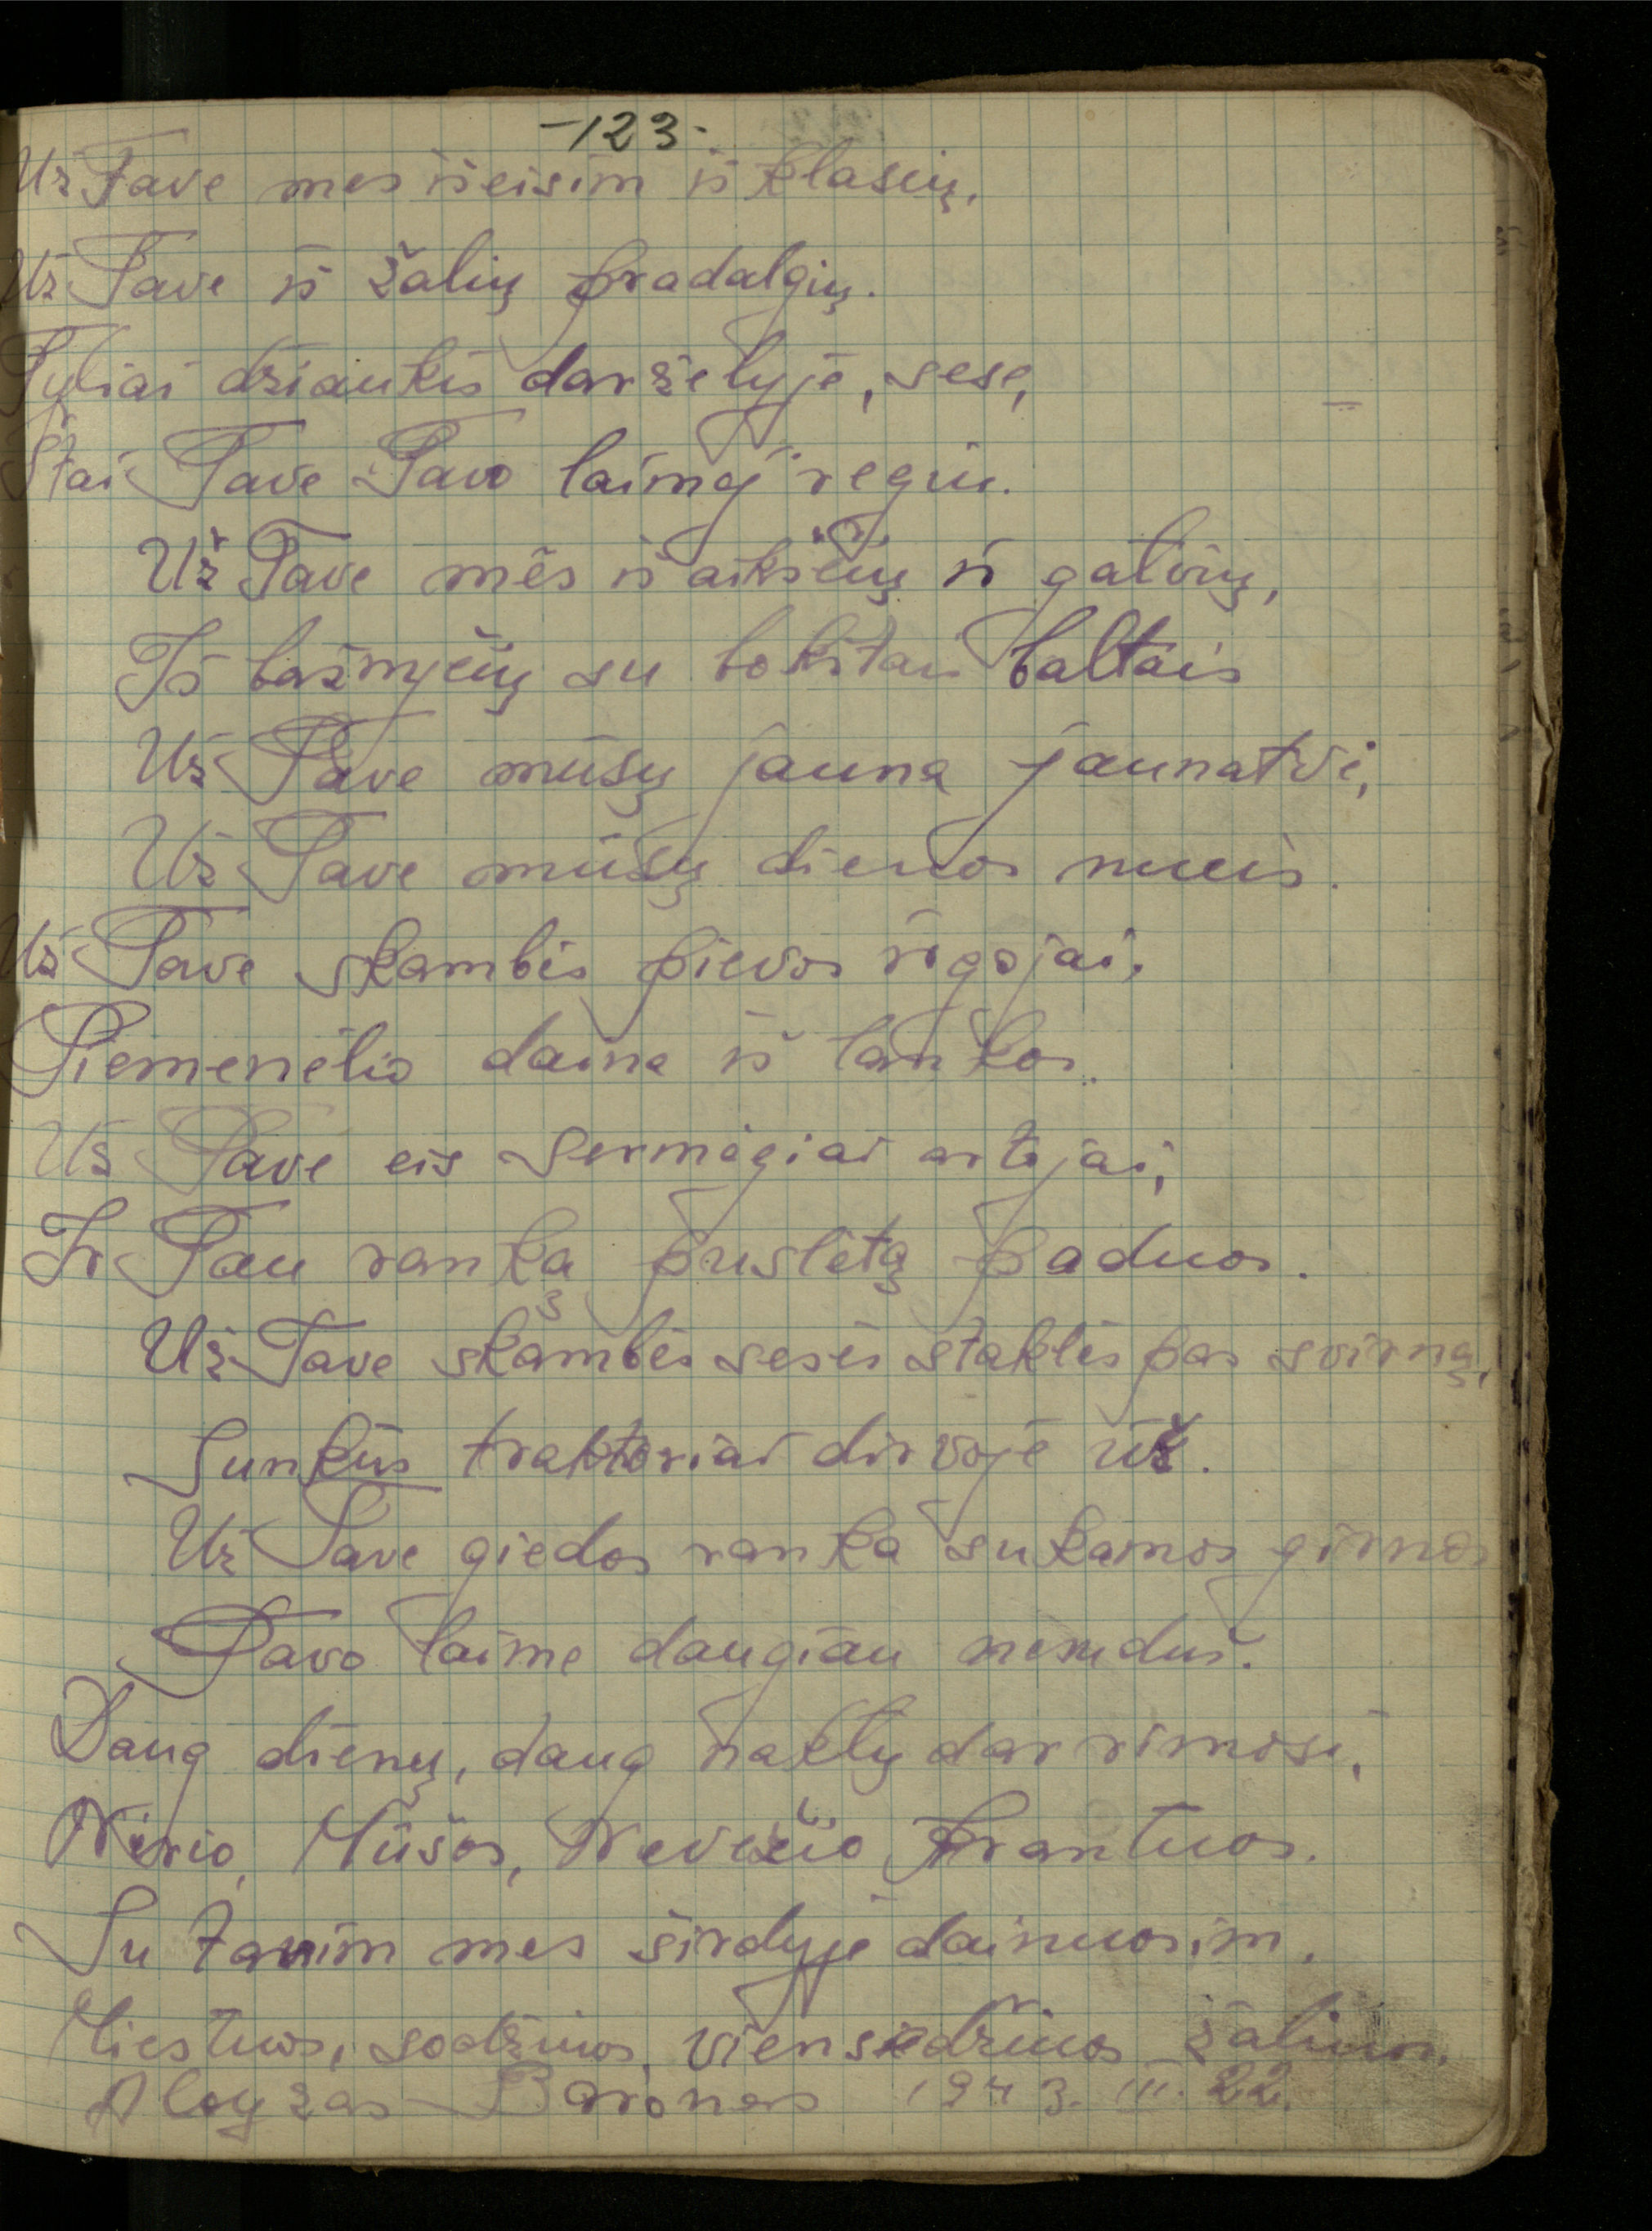 -123-
Už Tave mes išeisim iš klasių,
Už Tave iš žalių pradalgių.
Tyliai džiaukis darželyje, sese,
Štai Tave Tavo laimėj regiu.
Už Tave mes iš aikščių iš gatvių,
Iš bažnyčių su bokštais baltais
Už Tave mūsų jauna jaunatvė,
Už Tave mūsų dienos nueis.
Už Tave skambės pievos rugojai,
Piemenėlio daina iš lankos.
Už Tave eis sermėgiai artojai,
Ir Tau ranką pūslėtą paduos.
Už Tave skambės sesės staklės pas svirną,
Sunkūs traktoriai dirvoje ūš.
Už Tave giedos ranka sukamos girnos
Tavo laimė daugiau nesuduš.
Daug dienų, daug naktų dar rimosi,
Neries, Mūšos, Nevėžio krantuos.
Su tavim mes širdyje dainuosim,
Miestuos, sodžiuos, viensėdžiuos žaliuos.
Aloyzas Baronas 1943. III. 22.